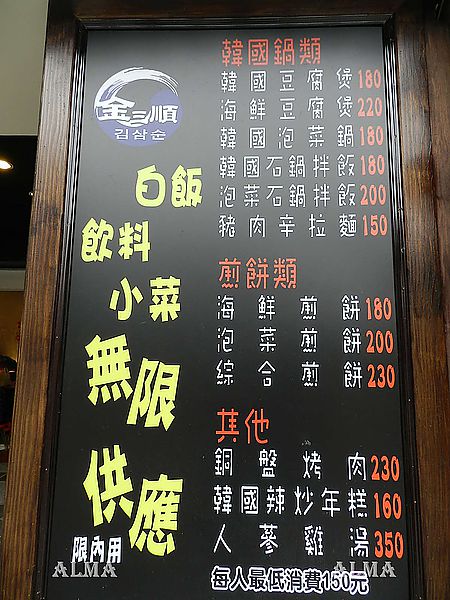 金三順
김삼순
白飯
飲料
小菜
無限
供應
限內用
韓國鍋類
韓國豆腐煲180
海鮮豆腐煲220
韓國泡菜鍋180
韓國石鍋拌飯180
泡菜石鍋拌飯200
豬肉辛拉麵150
煎餅類
海鮮煎餅180
泡菜煎餅200
綜合煎餅230
其他
銅盤烤肉230
韓國辣炒年糕160
人蔘雞湯350
每人最低消費150元
ALMA
ALMA